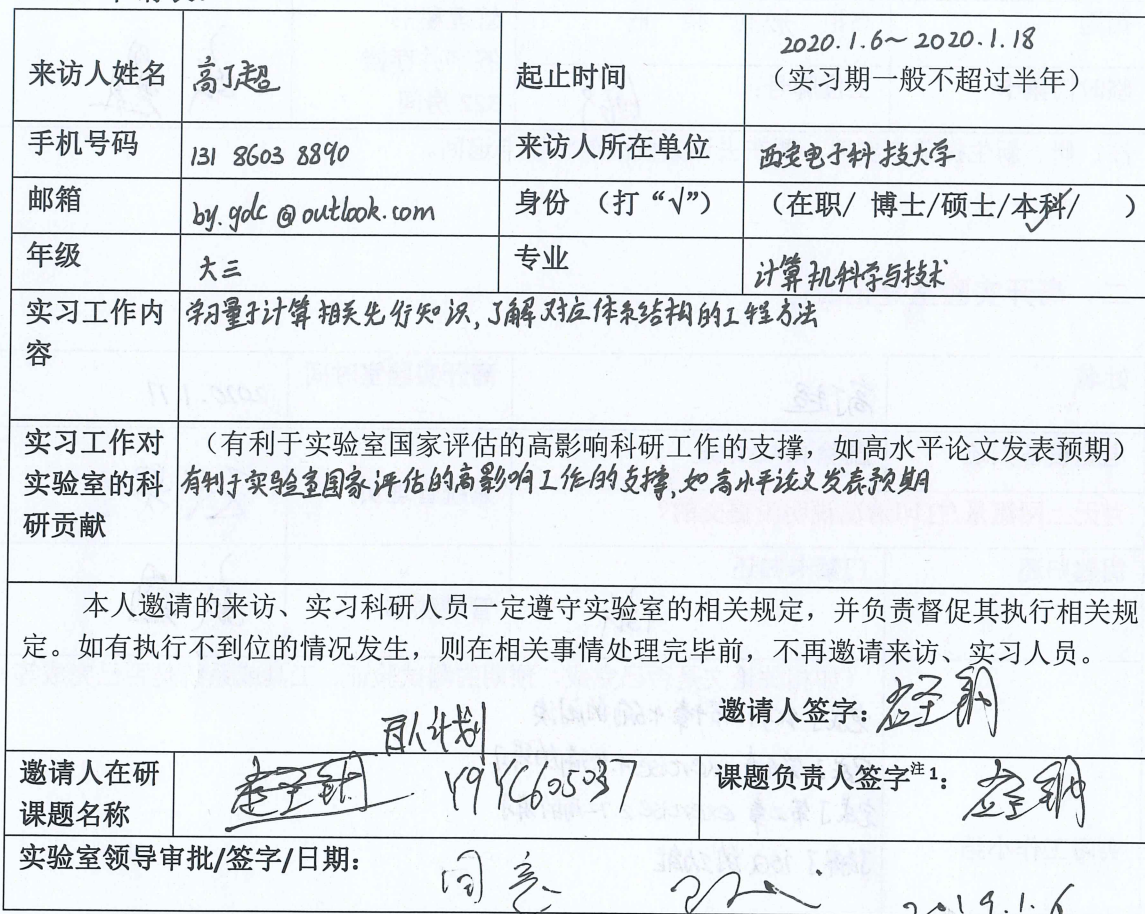 2020.1.6~2020.1.18
来访人姓名 高丁超 起止时间 （实习期一般不超过半年）
手机号码 131 8603 8890 来访人所在单位 西安电子科技大学
邮箱 by.gdc@outlook.com 身份 （打“√”） （在职/ 博士/硕士/本科/√ ）
年级 大三 专业 计算机科学与技术
实习工作内 学习量子计算相关先行知识,了解对应体系结构的工程方法
容
实习工作对 （有利于实验室国家评估的高影响科研工作的支撑，如高水平论文发表预期）
实验室的科 有利于实验室国家评估的高影响工作的支撑,如高水平论文发表预期
研贡献
本人邀请的来访、实习科研人员一定遵守实验室的相关规定，并负责督促其执行相关规
定。如有执行不到位的情况发生，则在相关事情处理完毕前，不再邀请来访、实习人员。
邀请人签字：
百人计划
邀请人在研 课题负责人签字注1：
课题名称
实验室领导审批/签字/日期：
同意 2019.1.6